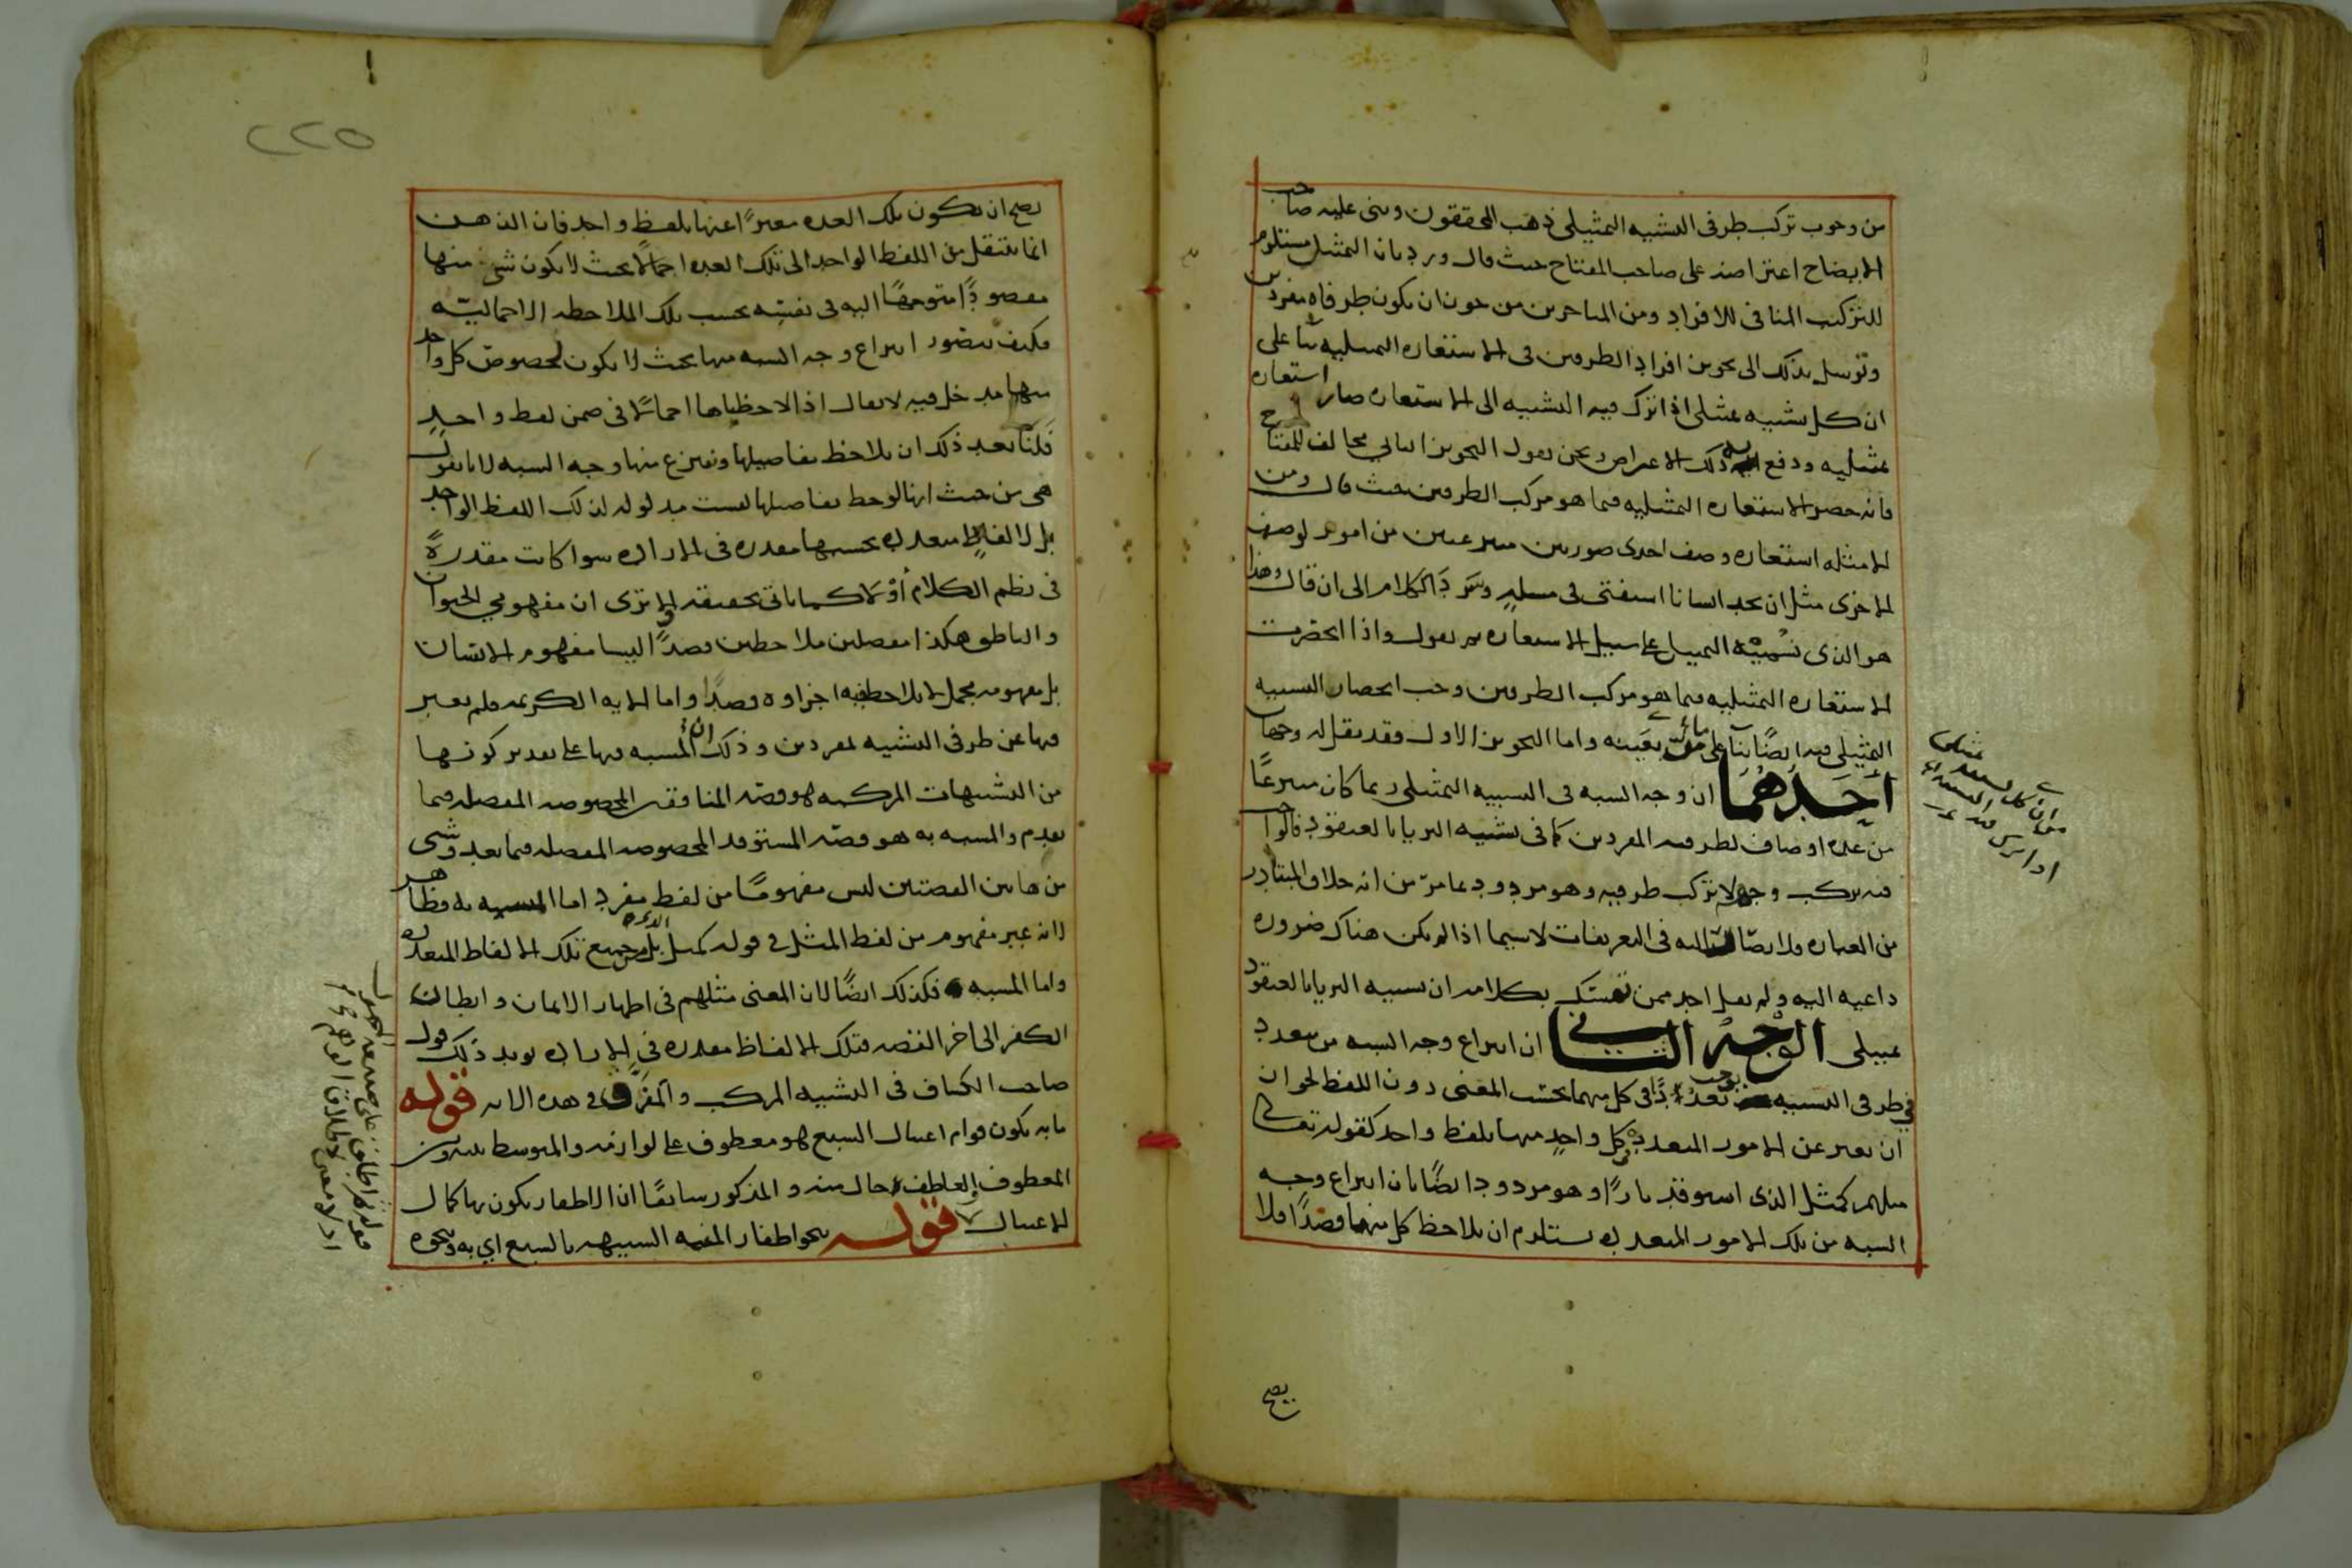 من وجوب تركب طرفى التشبيه التمثيلى ذهب المحققون وبنى عليه صاحب
الايضاح اعتراضه على صاحب المفتاح حيث قال ورد بان التمثيل مستلزم
للتركيب المنافى للافراد ومن المتاخرين من جوز ان يكون طرفاه مفردين
وتوسل بذلك الى تجويز افراد الطرفين فى الاستعارة التمثيلية بنا على
ان كل تشبيه تمثيلى اذا ترك فيه التشبيه الى الاستعارة صار استعارة
تمثيلية ودفع به ذلك الاعتراض ونحن نقول التجويز الثانى مخالف للمفتاح
فانه حصر الاستعارة التمثيلية فيما هو مركب الطرفين حيث قال ومن
الامثلة استعارة وصف احدى صورتين منتزعتين من امور لوصف
الاخرى مثل ان تجد انسانا استفتى فى مسئلة وسرد الكلام الى ان قال وهذا
هو الذى نسميه التمثيل على سبيل الاستعارة ثم نقول واذا انحصرت
الاستعارة التمثيلية فيما هو مركب الطرفين وجب انحصار التشبيه
التمثيلى فيه ايضًا بنآ على بعينه واما التجويز الاول فقد نقل له وجهان
احدهما ان وجه الشبه فى التشبيه التمثيلى ربما كان منتزعًا
من عدة اوصاف لطرفيه المفردين كما فى تشبيه الثريا بالعنقود قالوا حب
فيه تركب وجهه لا تركب طرفيه وهو مردود بما مرّ من انه خلاف المتبادر
من العبارة ولا يصار اليه فى التعريفات لاسيما اذا لم يكن هناك ضرورة
داعية اليه ولم يقل احد ممن تمسك بكلامه ان تشبيه الثريا بالعنقود
تمثيلى الوجه الثانى ان انتزاع وجه الشبه من متعدد
فى طرفى التشبيه يوجب تعددًا فى كل منهما بحسب المعنى دون اللفظ لجواز ان
ان يعبر عن الامور المتعددة فى كل واحد منهما بلفظ واحد كقوله تعالى
مثلهم كمثل الذى استوقد نارًا وهو مردود ايضًا بان انتزاع وجه
الشبه من تلك الامور المتعددة يستلزم ان يلاحظ كل منها قصدًا فلا
يصح
٢٢٥
يصح ان يكون تلك العدة معبرًا عنها بلفظ واحد فان الذهن
انما ينتقل من اللفظ الواحد الى تلك العدة اجمالًا بحيث لا يكون شئ منها
مقصودًا متوجهًا اليه فى نفسه بحسب تلك الملاحظة الاجمالية
فكيف يتصور انتزاع وجه الشبه منها بحيث لا يكون لخصوص كل واحد
منها مدخل فيه لا يقال اذا لاحظناها اجمالًا فى ضمن لفظ واحد
فلنا بعد ذلك ان نلاحظ تفاصيلها وننتزع منها وجه الشبه لانا نقول
هى من حيث انها لوحظ تفاصيلها ليست مدلولة لذلك اللفظ الواحد
بل لالفاظ متعددة بحسبها مقدرة فى الارادة سوا كانت مقدرة
فى نظم الكلام أو لا كما ياتى تحقيقه الا ترى ان مفهومى الحيوان
والناطق هكذا مفصلين ملاحظين قصدًا ليسا مفهوم الانسان
بل مفهومه مجمل لا يلاحظ فيه اجزاوه قصدًا واما الاية الكريمة فلم يعبر
فيها عن طرفى التشبيه بمفردين وذلك ان المشبه فيها على تقدير كونها
من التشبيهات المركبة هو قصة المنافقين المخصوصة المفصلة فيما
تقدم والمشبه به هو قصة المستوقد المخصوصة المفصلة فيما بعد وشى
من هاتين القصتين ليس مفهومًا من لفظ مفرد اما المشبه به فظاهر
لانه غير مفهوم من لفظ المثل فى قوله كمثل بل من جميع تلك الالفاظ المتعددة
واما المشبه فكذلك ايضًا لان المعنى مثلهم فى اظهار الايمان وابطان
الكفر الى اخر القصة فتلك الالفاظ مقدرة فى الارادة يويد ذلك قول
صاحب الكشاف فى التشبيه المركب والمفرق فى هذه الاية قوله
ما به يكون قوام اغتيال السبع هو معطوف على لوازمه والمتوسط بينه وبين
المعطوف العاطف حال منه والمذكور سابقًا ان الاظفار يكون بها كمال
الاغتيال قوله نحو اظفار المنية الشبيهة بالسبع اي به ونحوه